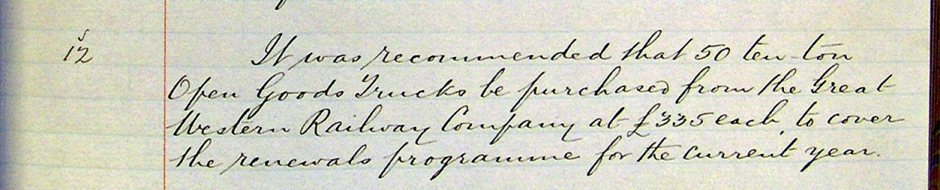 12
It was recommended that 50 ten-ton
Open Goods Trucks be purchased from the Great
Western Railway Company at £335 each, to cover
the renewals programme for the current year.